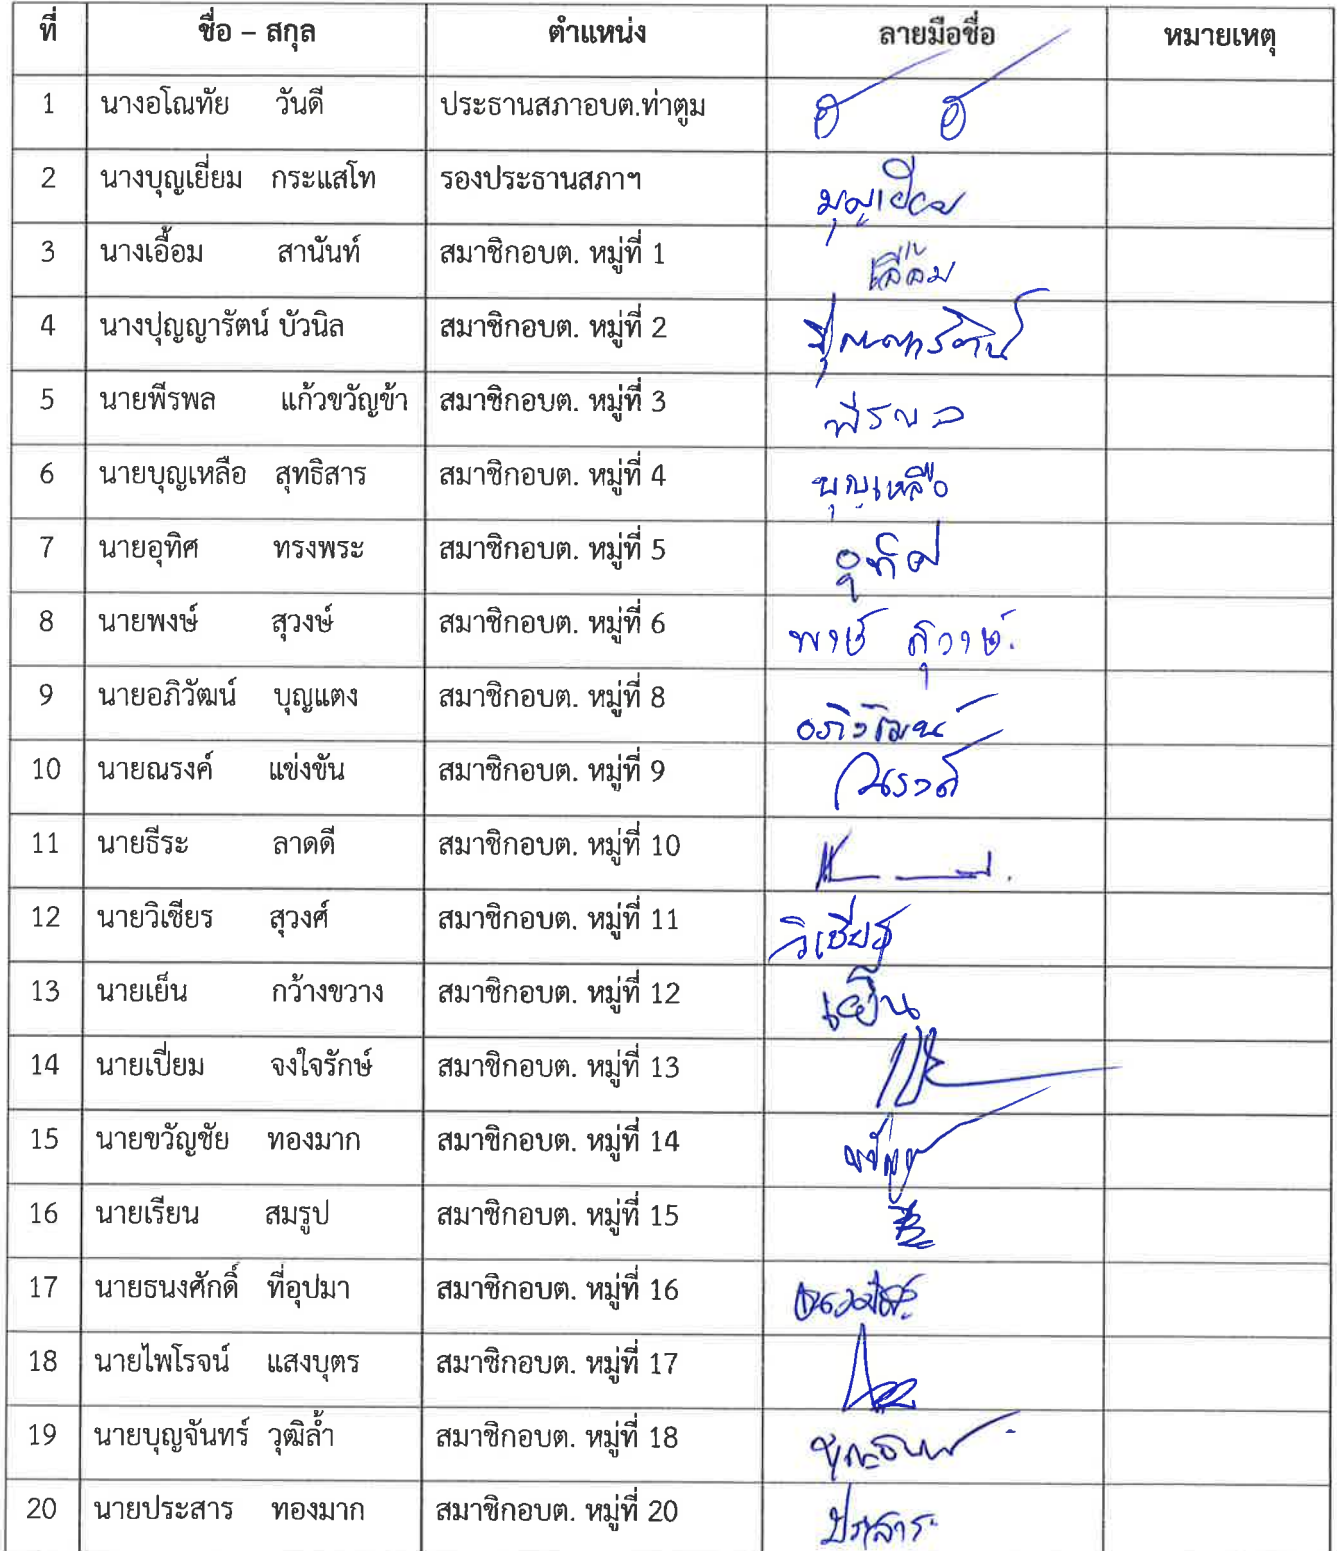 ที่ ชื่อ – สกุล ตำแหน่ง ลายมือชื่อ หมายเหตุ
1 นางอโณทัย วันดี ประธานสภาอบต.ท่าตูม
2 นางบุญเยี่ยม กระแสโท รองประธานสภาฯ บุญเยี่ยม
3 นางเอื้อม สานันท์ สมาชิกอบต. หมู่ที่ 1 เอื้อม
4 นางปุญญารัตน์ บัวนิล สมาชิกอบต. หมู่ที่ 2 ปุญญารัตน์
5 นายพีรพล แก้วขวัญข้า สมาชิกอบต. หมู่ที่ 3 พีรพล
6 นายบุญเหลือ สุทธิสาร สมาชิกอบต. หมู่ที่ 4 บุญเหลือ
7 นายอุทิศ ทรงพระ สมาชิกอบต. หมู่ที่ 5 อุทิศ
8 นายพงษ์ สุวงษ์ สมาชิกอบต. หมู่ที่ 6 พงษ์ สุวงษ์
9 นายอภิวัฒน์ บุญแตง สมาชิกอบต. หมู่ที่ 8 อภิวัฒน์
10 นายณรงค์ แข่งขัน สมาชิกอบต. หมู่ที่ 9 ณรงค์
11 นายธีระ ลาดดี สมาชิกอบต. หมู่ที่ 10
12 นายวิเชียร สุวงศ์ สมาชิกอบต. หมู่ที่ 11 วิเชียร
13 นายเย็น กว้างขวาง สมาชิกอบต. หมู่ที่ 12 เย็น
14 นายเปี่ยม จงใจรักษ์ สมาชิกอบต. หมู่ที่ 13
15 นายขวัญชัย ทองมาก สมาชิกอบต. หมู่ที่ 14
16 นายเรียน สมรูป สมาชิกอบต. หมู่ที่ 15
17 นายธนงศักดิ์ ที่อุปมา สมาชิกอบต. หมู่ที่ 16
18 นายไพโรจน์ แสงบุตร สมาชิกอบต. หมู่ที่ 17
19 นายบุญจันทร์ วุฒิล้ำ สมาชิกอบต. หมู่ที่ 18
20 นายประสาร ทองมาก สมาชิกอบต. หมู่ที่ 20 ประสาร